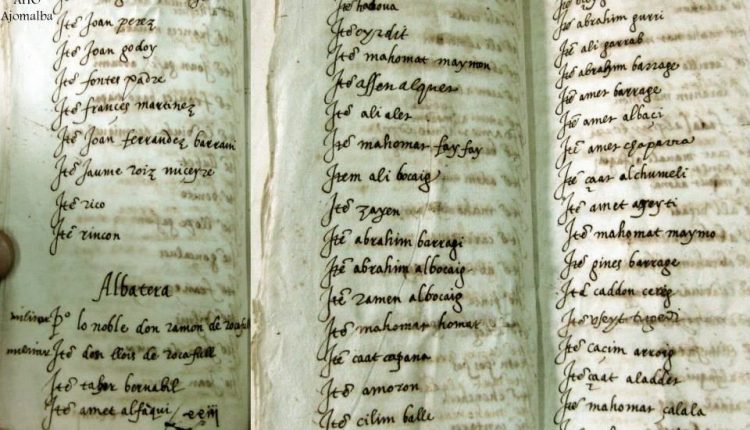 AHO
Ajomalba
Ite Joan perez
Ite Joan godoy
Ite fontes padre
Ite frances martinez
Ite Joan ferrandez barrani
Ite Jaume roiz
Ite rico
Ite rincon
Albatera
Po lo noble don ramon de rocafull
Ite don llois de rocafull
Ite taher
Ite amet alfaqui
Ite
Ite mahomat maymon
Ite assen alquer
Ite ali alet
Ite mahomat fay fay
Item ali bocaig
Ite zayen
Ite abrahim barragi
Ite abrahim albocaig
Ite ramen albocaig
Ite mahomat homar
Ite çaat çapana
Ite amoron
Ite cilim balle
Ite abrahim gurri
Ite ali garrab
Ite abrahim barrage
Ite amet barrage
Ite amet albaçi
Ite amet chaparra
Ite çaat alchumeli
Ite amet
Ite mahomat maymo
Ite gines barrage
Ite caddon
Ite
Ite cacim arroig
Ite çaat aladdet
Ite mahomat calala